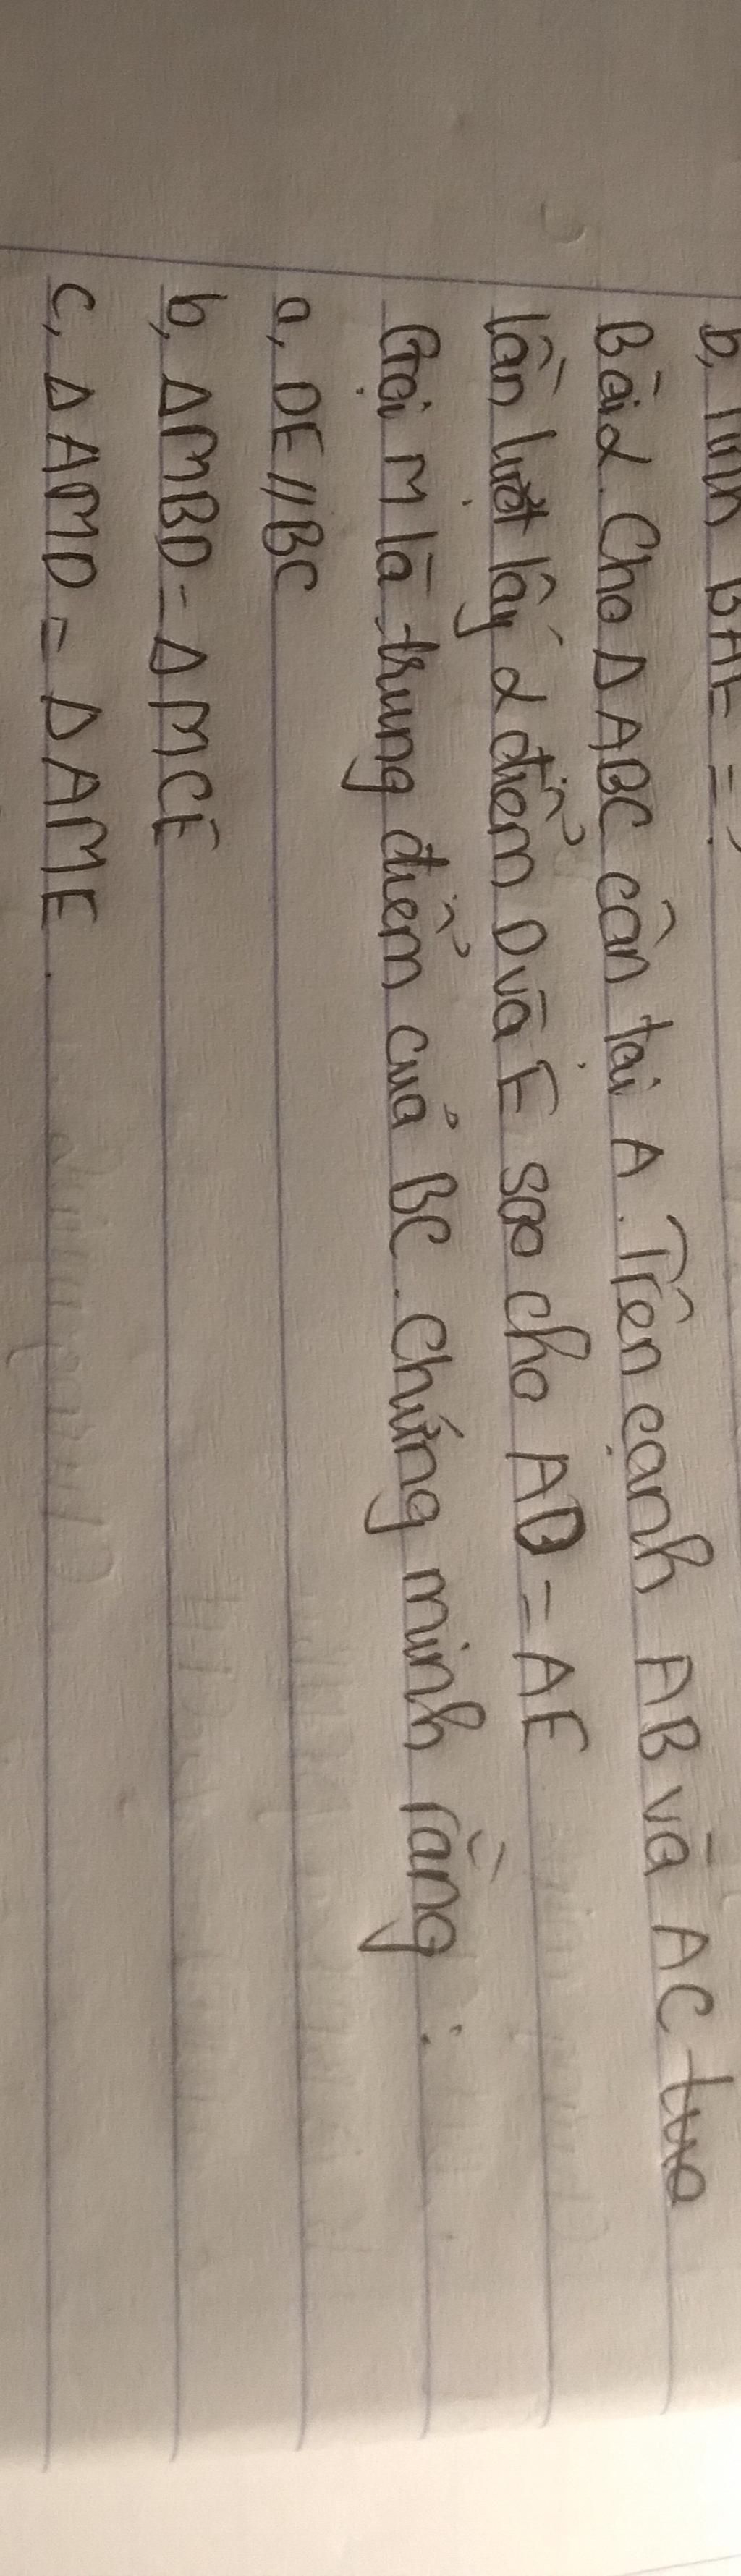 b, Tính BAE = ?
Bài 2. Cho Δ ABC cân tại A. Trên cạnh AB và AC
lần lượt lấy 2 điểm D và E sao cho AD = AE
Gọi M là trung điểm của BC. Chứng minh rằng :
a, DE // BC
b, Δ MBD = Δ MCE
c, Δ AMD = Δ AME.